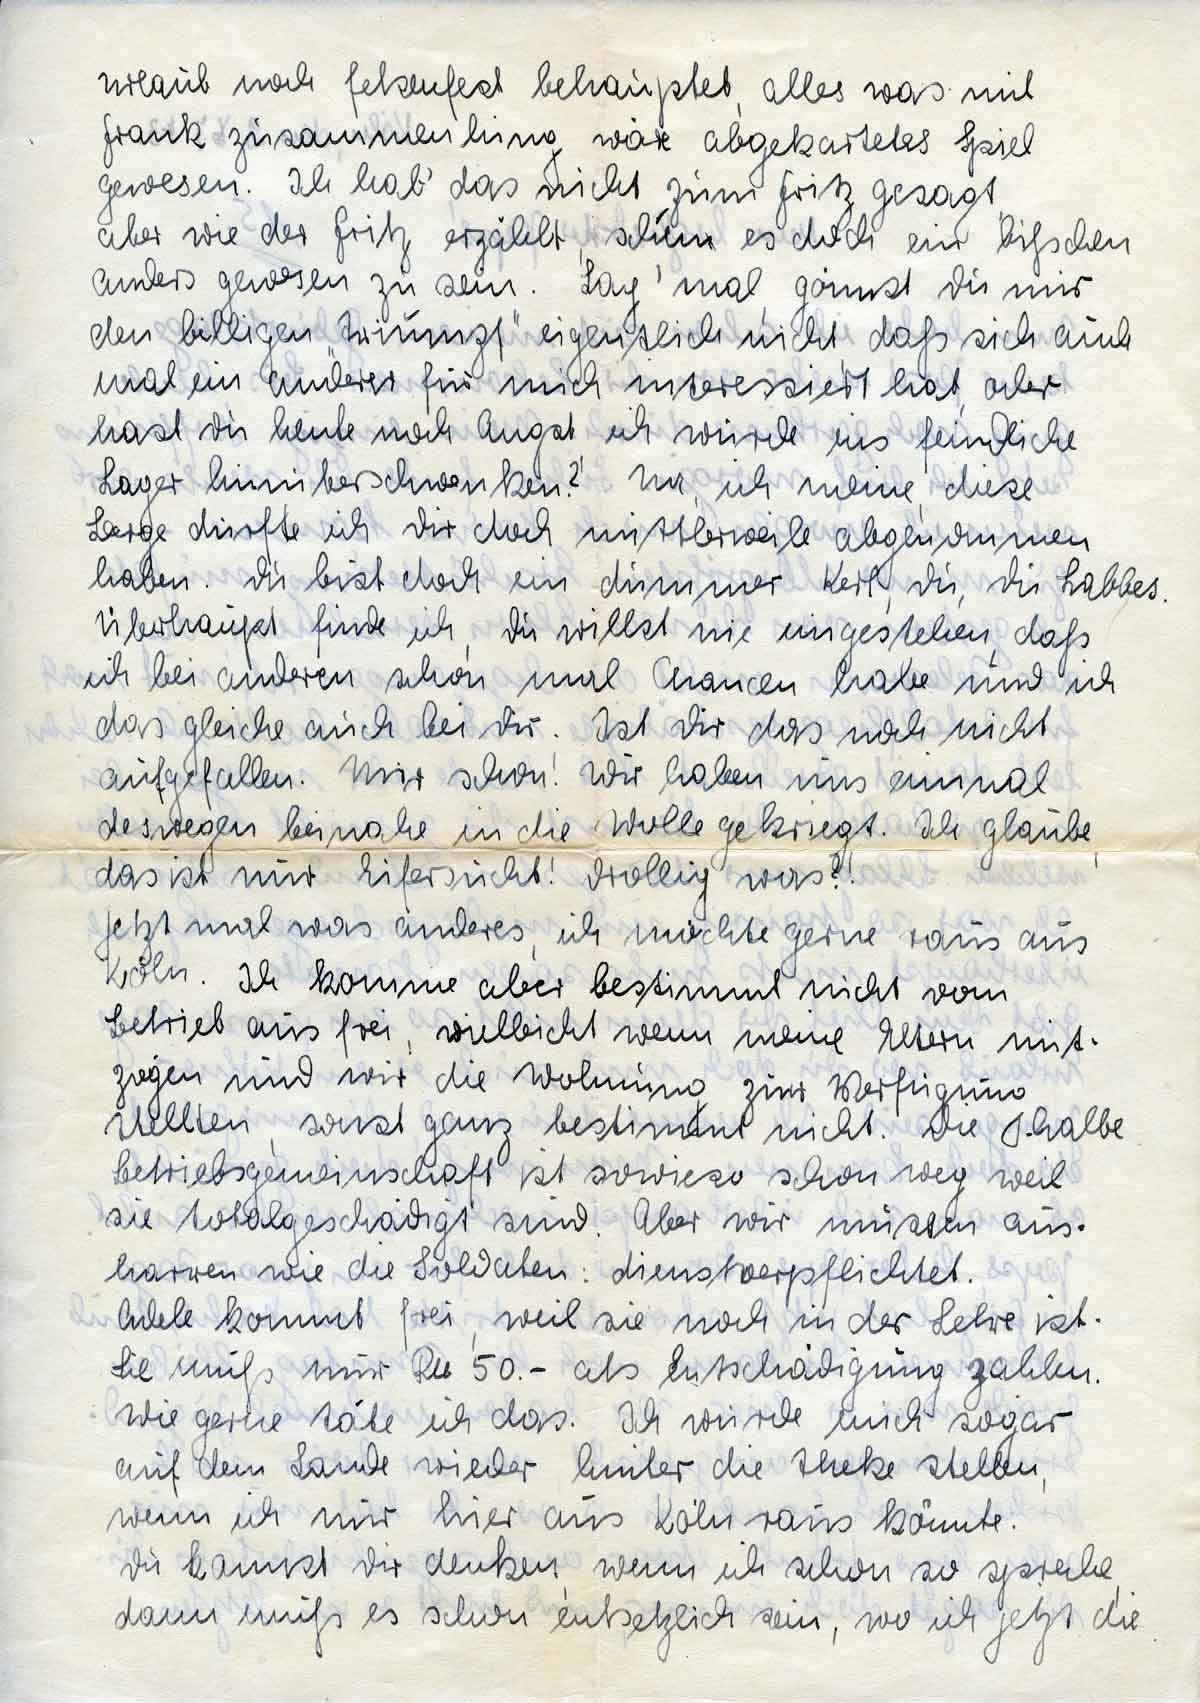 urlaub noch felsenfest behauptet, alles was mit
Frank zusammenhing, wäre abgekartetes Spiel
gewesen. Ich hab' das nicht zum Fritz gesagt,
aber wie der Fritz erzählt, schien es doch ein bißchen
anders gewesen zu sein. Sag' mal, gönnst Du mir
den billigen „Triumpf" eigentlich nicht, daß sich auch
mal ein anderer für mich interessiert hat, oder
hast Du heute noch Angst ich würde ins feindliche
Lager hinüberschwenken?' Na, ich meine, diese
Sorge dürfte ich Dir doch mittlerweile abgenommen
haben. Du bist doch ein dummer Kerl, Du, Du Labbes.
Überhaupt finde ich, Du willst nie eingestehen, daß
ich bei anderen schon mal Chancen habe und ich
das gleiche auch bei Dir. Ist Dir das noch nicht
aufgefallen. Mir schon! Wir haben uns einmal
deswegen beinahe in die Wolle gekriegt. Ich glaube,
das ist nur Eifersucht! Drollig was?!
Jetzt mal was anderes, ich möchte gerne raus aus
Köln. Ich komme aber bestimmt nicht vom
Betrieb aus frei, vielleicht wenn meine Eltern mit-
zögen und wir die Wohnung zur Verfügung
stellten, sonst ganz bestimmt nicht. Die halbe
Betriebsgemeinschaft ist sowieso schon weg, weil
sie totalgeschädigt sind. Aber wir müssen aus-
harren wie die Soldaten: dienstverpflichtet.
Adele kommt frei, weil sie noch in der Lehre ist.
Sie muß nur RM 50.- als Entschädigung zahlen.
Wie gerne täte ich das. Ich würde mich sogar
auf dem Lande wieder hinter die Theke stellen,
wenn ich nur hier aus Köln raus könnte.
Du kannst Dir denken, wenn ich schon so spreche,
dann muß es schon entsetzlich sein, wo ich jetzt die